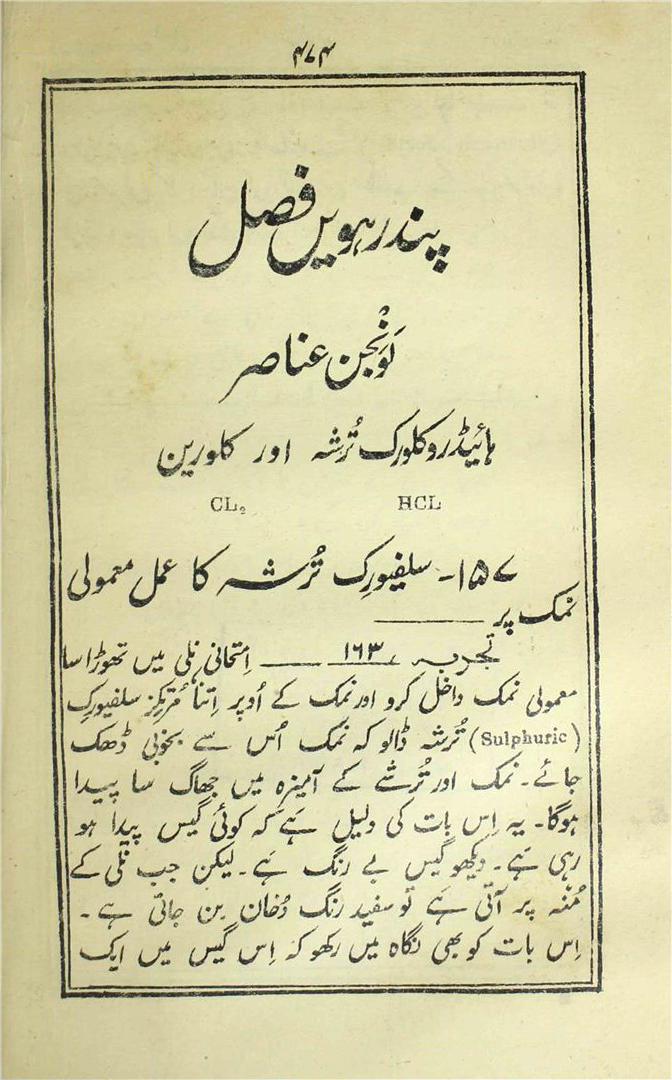 ۴۷۴
پندرہویں فصل
نَونجن عناصر
ہائیڈروکلورک تُرشہ اور کلورین
HCL CL₂
۱۵۷- سلفیورِک تُرشہ کا عمل معمولی
نمک پر ــــــــ
تجربہ ۱۶۳ ــــــــ اِمتحانی نلی میں تھوڑا سا
معمولی نمک داخل کرو اور نمک کے اُوپر اِتنا مُرتکز سلفیورِک
(Sulphuric) تُرشہ ڈالو کہ نمک اُس سے بخوبی ڈھک
جائے۔ نمک اور تُرشے کے آمیزہ میں جھاگ سا پیدا
ہوگا۔ یہ اِس بات کی دلیل ہَے کہ کوئی گیس پیدا ہو
رہی ہَے۔ دیکھو گیس بے رنگ ہَے۔ لیکن جب نلی کے
مُنہ پر آتی ہَے تو سفید رنگ دُخان بن جاتی ہَے۔
اِس بات کو بھی نگاہ میں رکھو کہ اِس گیس میں ایک